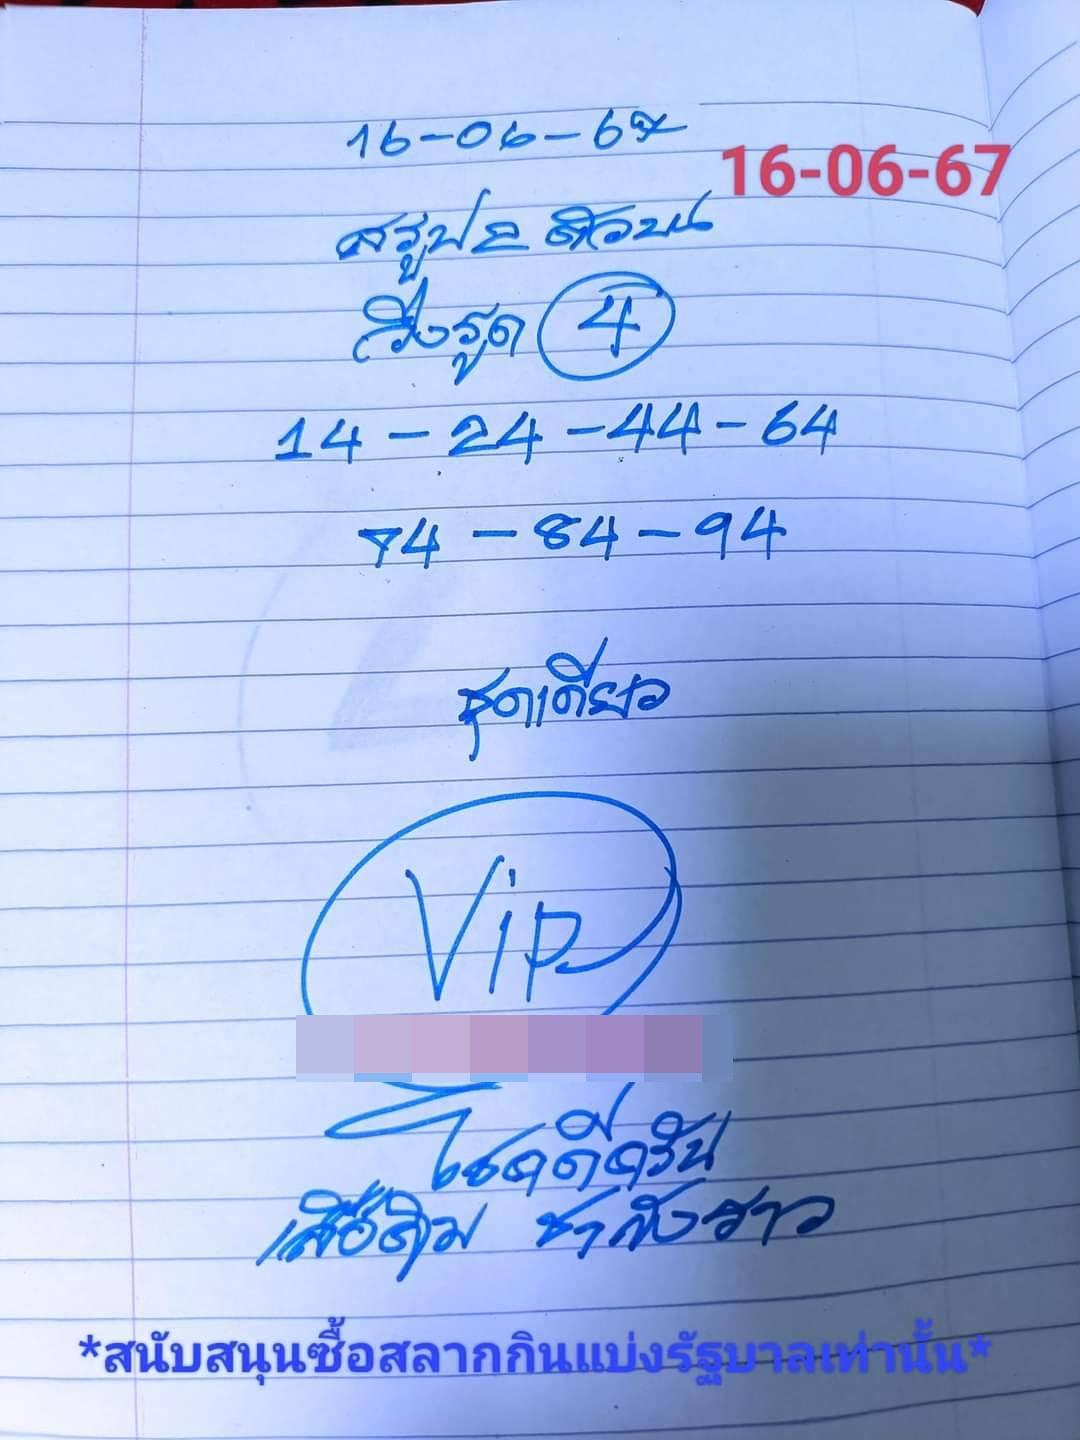 16-06-67
16-06-67
สรูป 2 ตัวบน
วิ่งรูด 4
14 - 24 - 44 - 64
74 - 84 - 94
ชุดเดียว
Vip
โชคดีครับ
เสือดิม ชากังราว
*สนับสนุนซื้อสลากกินแบ่งรัฐบาลเท่านั้น*